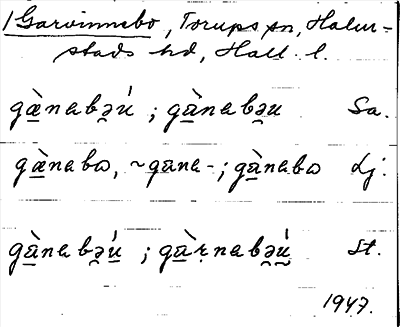 Garvinnebo, Torups sn, Halm-
stads hd, Hall. l.
gæ̀nabə̯ú ; gà̱nabə̯u Sa.
gæ̱̀nabω, ~gāna- ; gà̱nabω Lj.
gà̱nabə̯ú̱ ; gà̱ṛnabə̯ú̱ St.
1947.